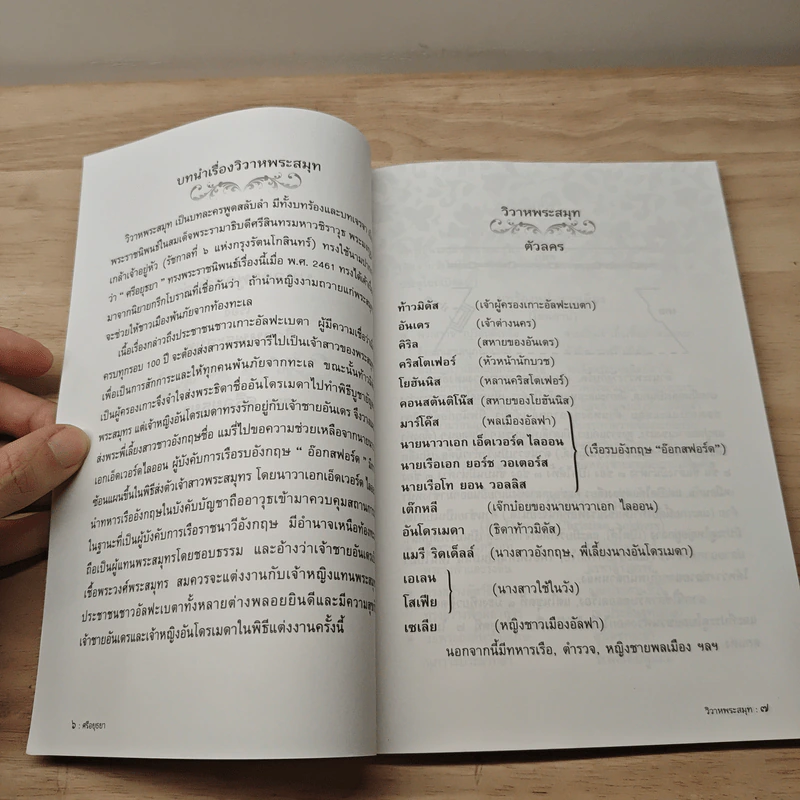 บทนำเรื่องวิวาหพระสมุท
วิวาหพระสมุท เป็นบทละครพูดสลับลำ มีทั้งบทร้องและบทเจรจา
พระราชนิพนธ์ในสมเด็จพระรามาธิบดีศรีสินทรมหาวชิราวุธ
เกล้าเจ้าอยู่หัว (รัชกาลที่ ๖ แห่งกรุงรัตนโกสินทร์) ทรงใช้
ว่า “ ศรีอยุธยา ” ทรงพระราชนิพนธ์เรื่องนี้เมื่อ พ.ศ. 2461 ทรงได้
มาจากนิยายกรีกโบราณที่เชื่อกันว่า ถ้านำหญิงงามถวายแก่
จะช่วยให้ชาวเมืองพ้นภัยจากท้องทะเล
เนื้อเรื่องกล่าวถึงประชาชนชาวเกาะอัลฟะเบตา ผู้มีความเชื่อ
ครบทุกรอบ 100 ปี จะต้องส่งสาวพรหมจารีไปเป็นเจ้าสาวของ
เพื่อเป็นการสักการะและให้ทุกคนพ้นภัยจากทะเล ขณะนั้น
เป็นผู้ครองเกาะจึงจำใจส่งพระธิดาชื่ออันโดรเมดาไปทำพิธี
พระสมุทร แต่เจ้าหญิงอันโดรเมดาทรงรักอยู่กับเจ้าชายอันเดร
ส่งพระพี่เลี้ยงสาวชาวอังกฤษชื่อ แมรี่ไปขอความช่วยเหลือจาก
เอกเอ็ดเวอร์ดไลออน ผู้บังคับการเรือรบอังกฤษ “ อ๊อกสฟอร์ด ”
ซ้อนแผนขึ้นในพิธีส่งตัวเจ้าสาวพระสมุทร โดยนาวาเอกเอ็ดเวอร์ด
นำทหารเรืออังกฤษในบังคับบัญชาถืออาวุธเข้ามาควบคุม
ในฐานะที่เป็นผู้บังคับการเรือราชนาวีอังกฤษ มีอำนาจเหนือ
ถือเป็นผู้แทนพระสมุทรโดยชอบธรรม และอ้างว่าเจ้าชาย
เชื้อพระวงศ์พระสมุทร สมควรจะแต่งงานกับเจ้าหญิงแทน
ประชาชนชาวอัลฟะเบตาทั้งหลายต่างพลอยยินดีและมีความ
เจ้าชายอันเดรและเจ้าหญิงอันโดรเมดาในพิธีแต่งงานครั้งนี้
๖ : ศรีอยุธยา
วิวาหพระสมุท
ตัวลคร
ท้าวมิดัส (เจ้าผู้ครองเกาะอัลฟะเบตา)
อันเดร (เจ้าต่างนคร)
คิริล (สหายของอันเดร)
คริสโตเฟอร์ (หัวหน้านักบวช)
โยฮันนิส (หลานคริสโตเฟอร์)
คอนสตันติโน๊ส (สหายของโยฮันนิส)
มาร์โค๊ส (พลเมืองอัลฟา)
นายนาวาเอก เอ็ดเวอร์ด ไลออน
(เรือรบอังกฤษ “อ๊อกสฟอร์ด”)
นายเรือเอก ยอร์ช วอเตอร์ส
นายเรือโท ยอน วอลลิส
เต๊กหลี (เจ๊กบ๋อยของนายนาวาเอก ไลออน)
อันโดรเมดา (ธิดาท้าวมิดัส)
แมรี ริดเด็ลล์ (นางสาวอังกฤษ, พี่เลี้ยงนางอันโดรเมดา)
เอเลน
(นางสาวใช้ในวัง)
โสเฟีย
เซเลีย (หญิงชาวเมืองอัลฟา)
นอกจากนี้มีทหารเรือ, ตำรวจ, หญิงชายพลเมือง ฯลฯ
วิวาหพระสมุท : ๗